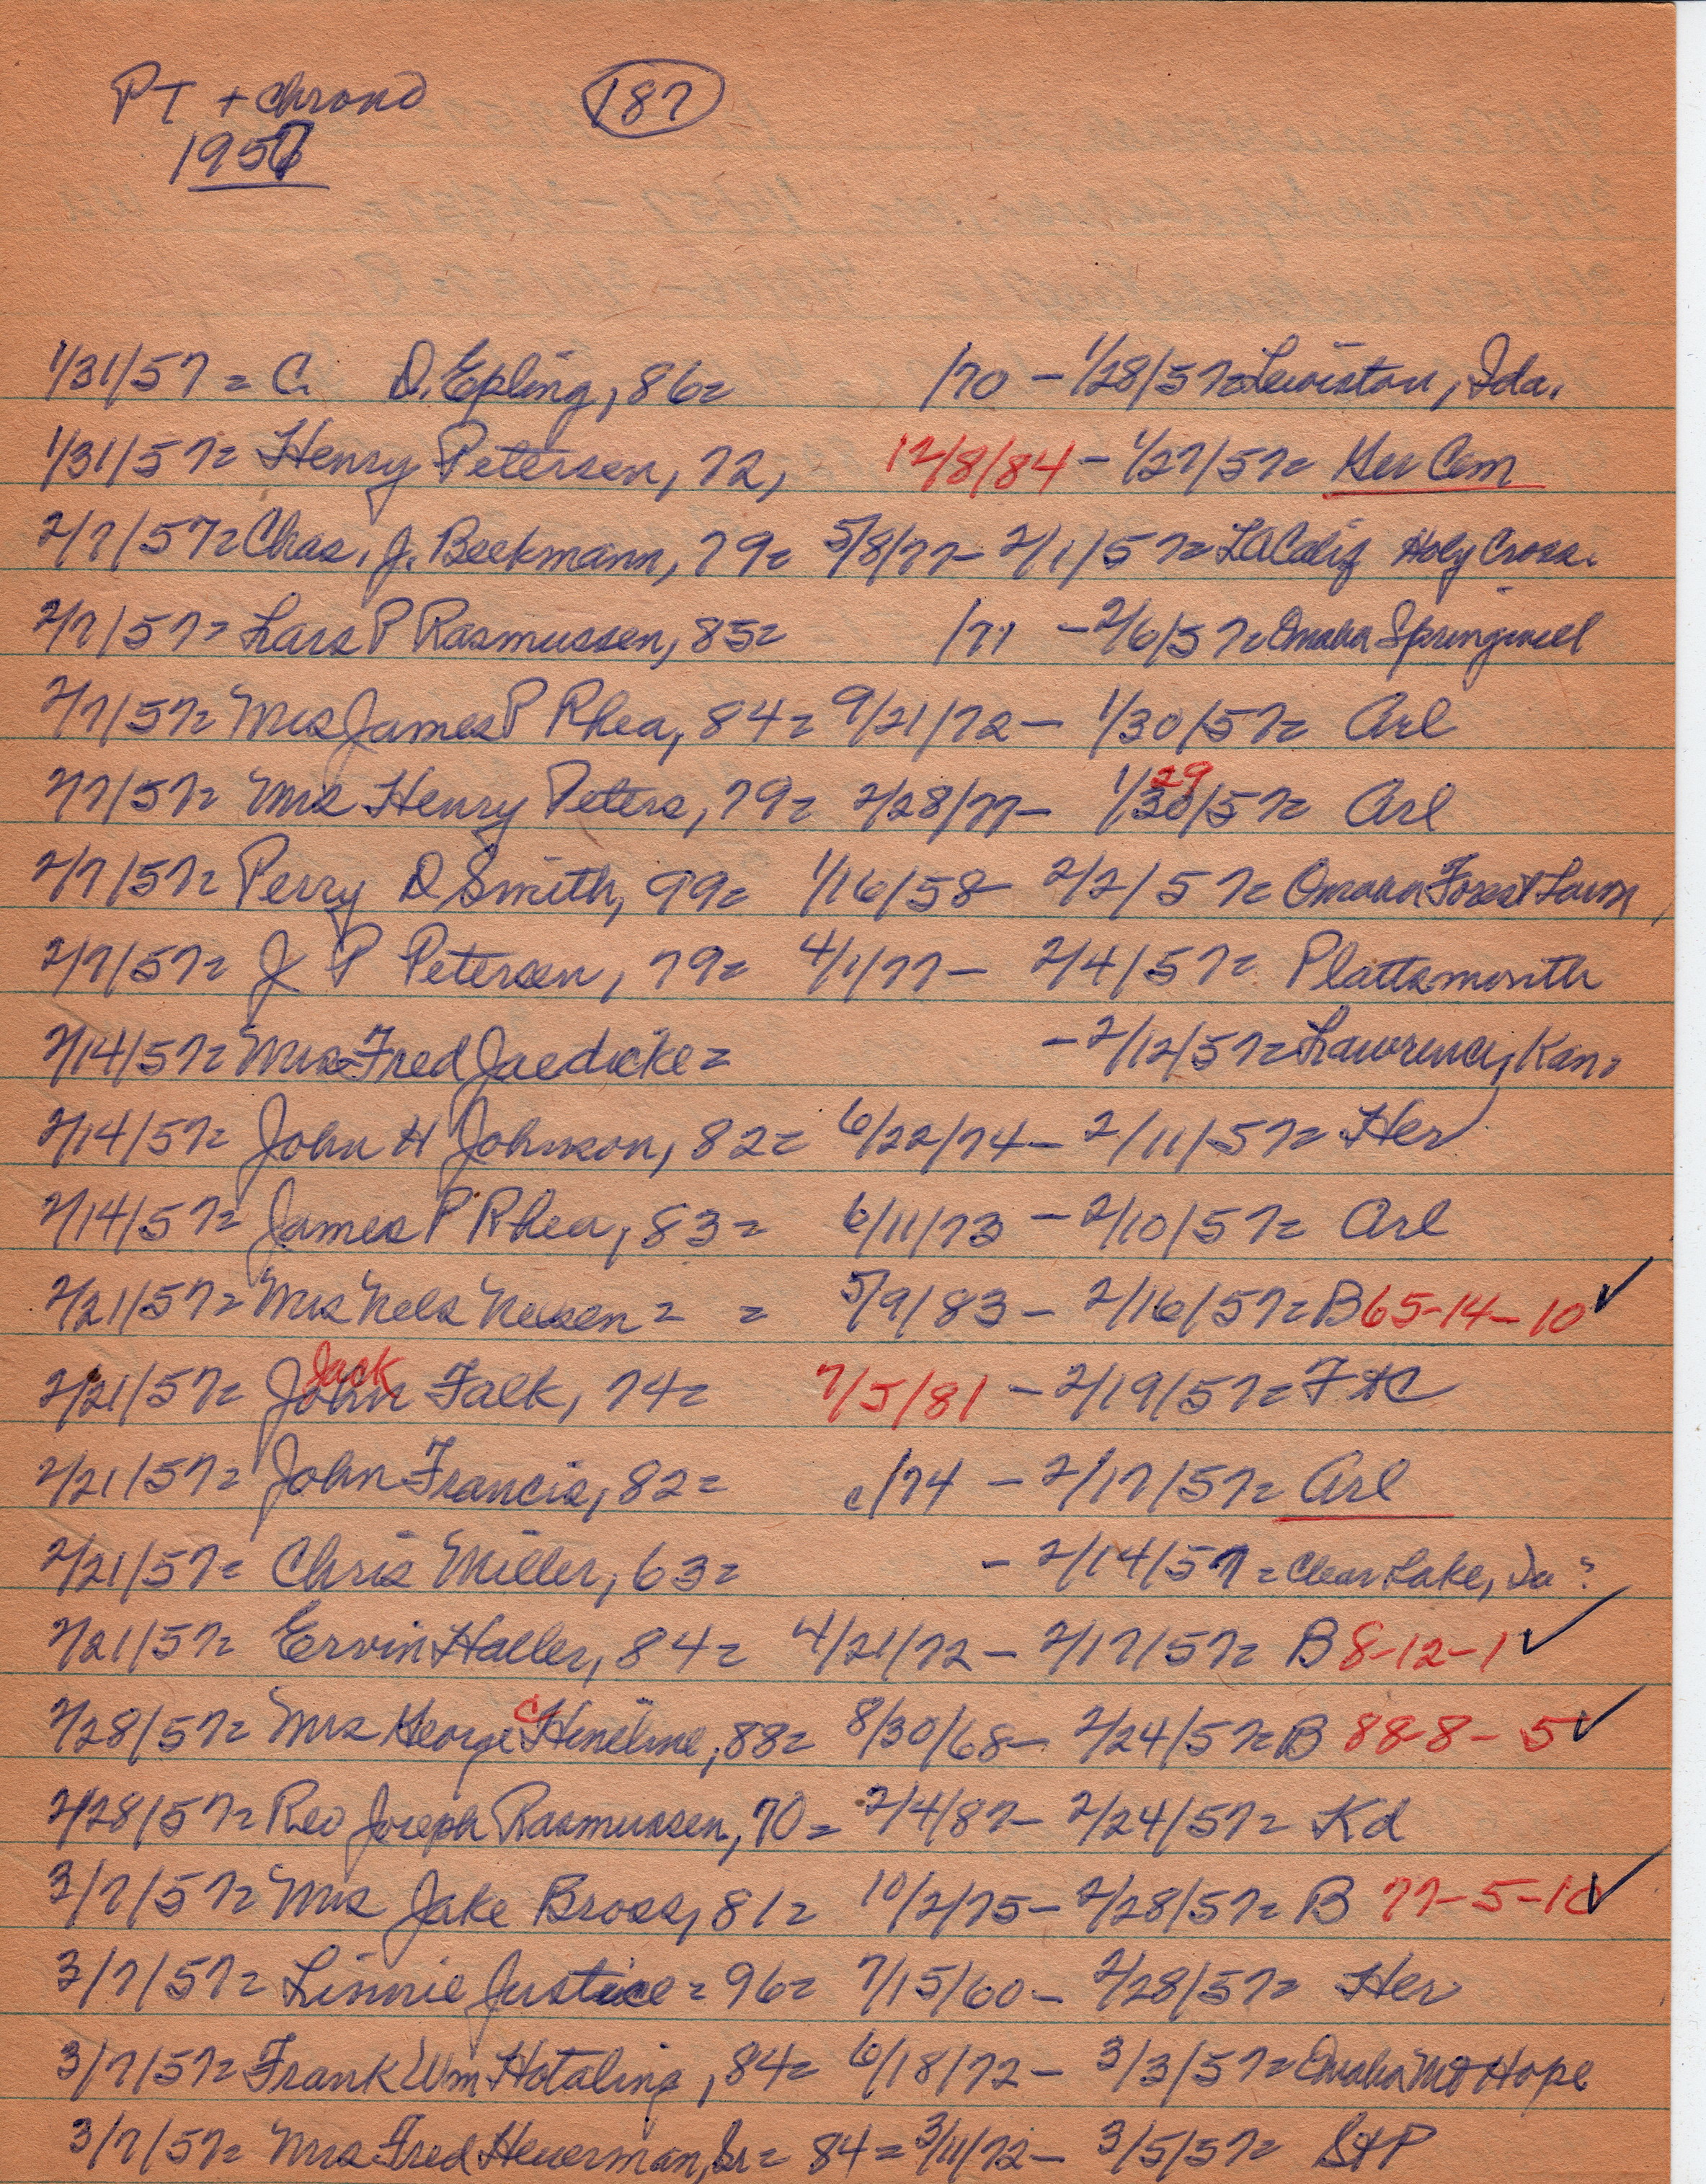 PT + chrono (187)
1957
1/31/57 = C. D. Epling, 86= /70 - 1/28/57= Lewiston, Ida.
1/31/57= Henry Petersen, 72, 12/8/84 - 1/27/57= Cem
2/7/57= Chas. J. Beekmann, 79= 5/8/77- 2/1/57= LA Calif Holy Cross.
2/7/57= Lars P Rasmussen, 85= /71 - 2/6/57= Omaha Springwell
2/7/57= Mrs James P Rhea, 84= 9/21/72- 1/30/57= Arl
2/7/57= Mrs Henry Peters, 79= 2/28/77- 1/30/57= Arl
29
2/7/57= Perry D Smith, 99= 1/16/58- 2/2/57= Omaha Forest Lawn
2/7/57= J P Petersen, 79= 4/1/77- 2/4/57= Plattsmouth
2/14/57= Mrs Fred Jaedicke= -2/12/57= Lawrence, Kan.
2/14/57= John H Johnson, 82= 6/22/74- 2/11/57= Her
2/14/57= James P Rhea, 83= 6/11/73 - 2/10/57= Arl
2/21/57= Mrs Nels Nelsen= = 5/9/83- 2/16/57= B 65-14-10 ✓
Jack
2/21/57= John Falk, 74= 7/5/81 - 2/19/57= FtC
2/21/57= John Francis, 82= c/74 - 2/17/57= Arl
2/21/57= Chris Miller, 63= - 2/14/57 = Clear Lake, Ia?
2/21/57= Ervin Haller, 84= 4/21/72- 2/17/57= B 8-12-1 ✓
2/28/57= Mrs George C Hineline, 88= 8/30/68- 2/24/57= B 88-8-5 ✓
2/28/57= Rev Joseph Rasmussen, 70= 2/4/87- 2/24/57= Kd
3/7/57= Mrs Jake Bross, 81= 10/2/75- 2/28/57= B 77-5-10 ✓
3/7/57= Linnie Justice= 96= 7/15/60- 2/28/57= Her
3/7/57= Frank Wm Hotaling, 84= 6/18/72- 3/3/57= Omaha Mt Hope
3/7/57= Mrs Fred Heuerman, Sr= 84= 3/11/72- 3/5/57= StP